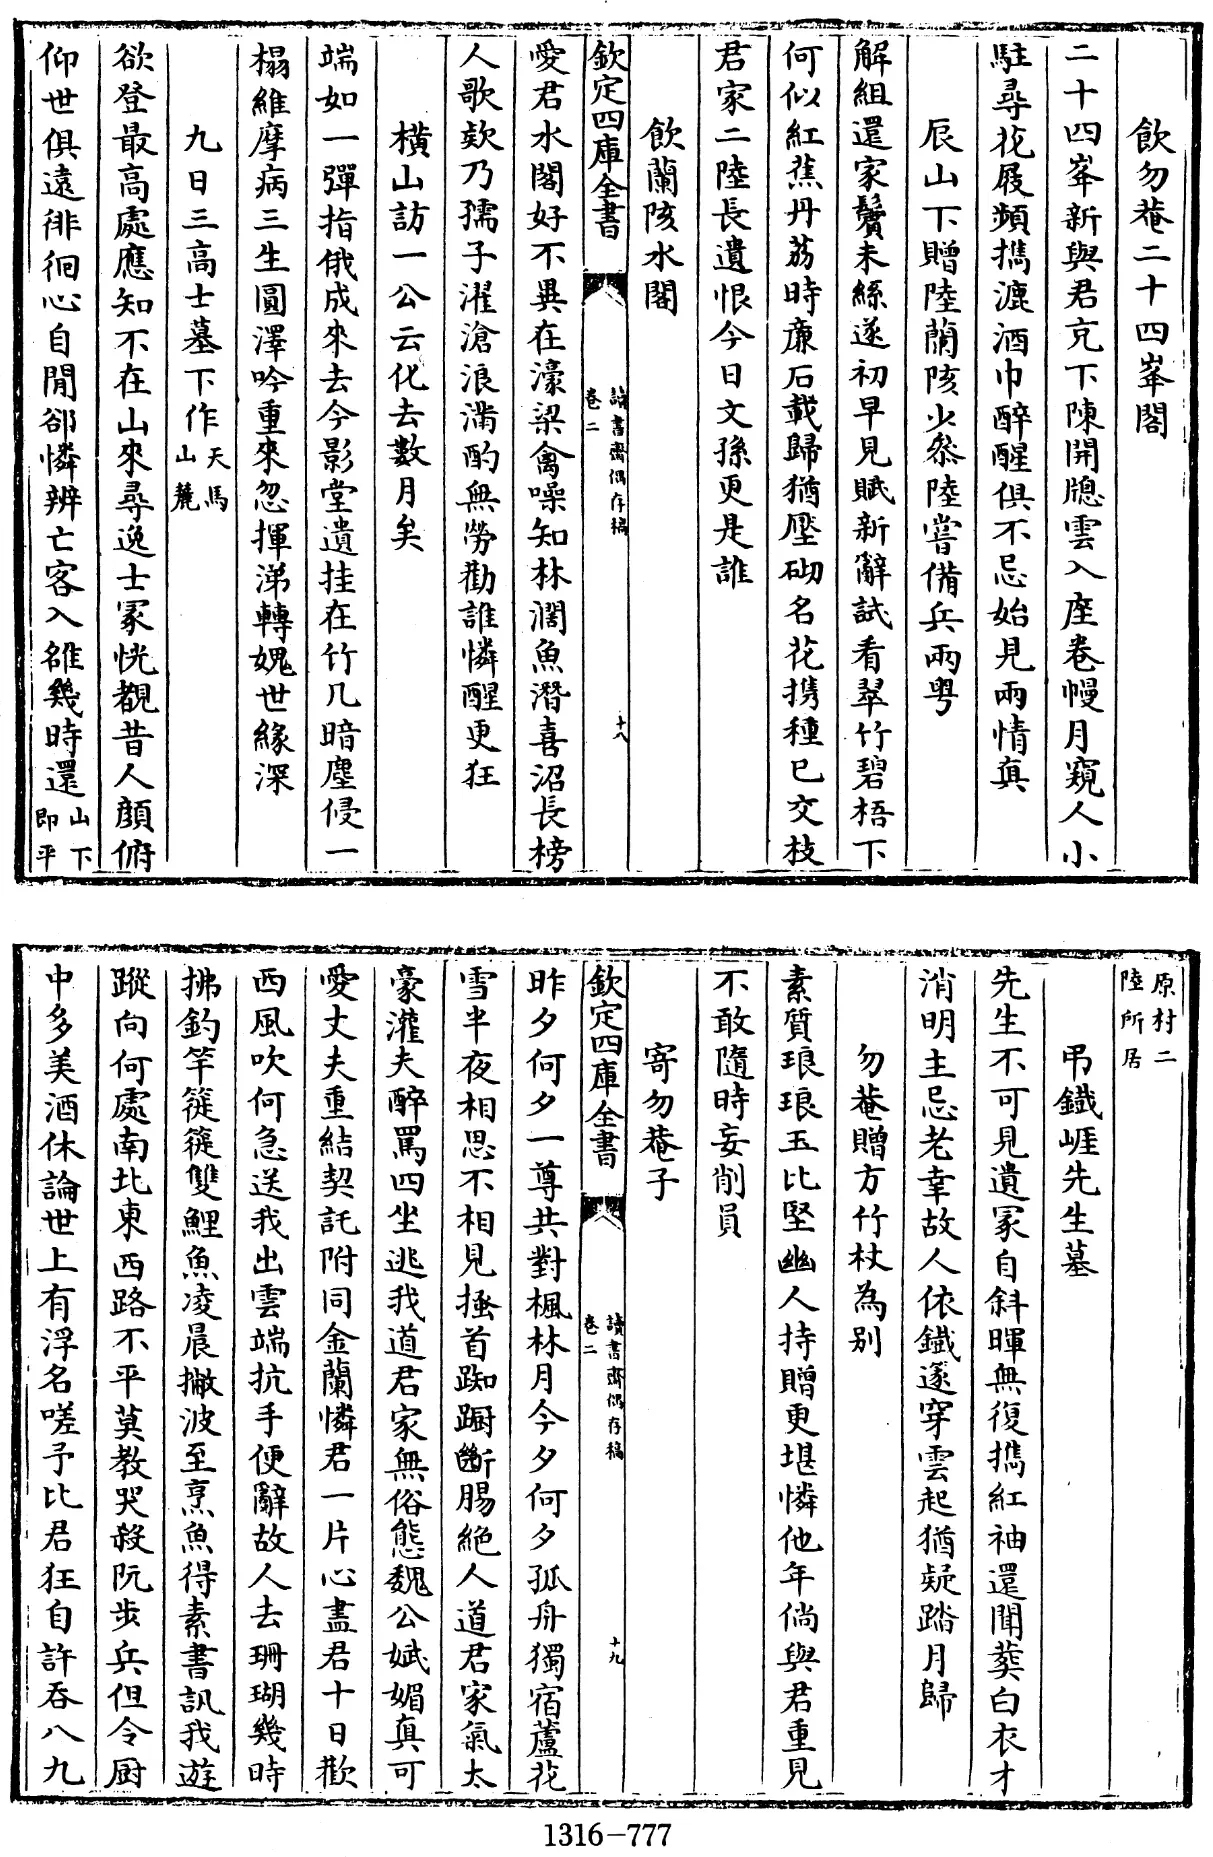 飲勿菴二十四峯閣
二十四峯新與君克下陳開牕雲入座卷幔月窺人小
駐尋花屐頻攜漉酒巾醉醒俱不忌始見兩情真
辰山下贈陸蘭陔少叅陸嘗備兵兩粵
解組還家鬢未絲遂初早見賦新辭試看翠竹碧梧下
何似紅蕉丹荔時廉石載歸猶壓砌名花携種已交枝
君家二陸長遺恨今日文孫更是誰
飲蘭陔水閣
欽定四庫全書
讀書齋偶存稿
卷二
十八
愛君水閣好不異在濠梁禽噪知林濶魚潛喜沼長榜
人歌欸乃孺子濯滄浪滿酌無勞勸誰憐醒更狂
橫山訪一公云化去數月矣
端如一彈指俄成來去今影堂遺挂在竹几暗塵侵一
榻維摩病三生圓澤吟重來忽揮涕轉媿世緣深
九日三高士墓下作天馬
山麓
欲登最高處應知不在山來尋逸士冢恍覩昔人顔俯
仰世俱遠徘徊心自閒郤憐辨亡客入雒幾時還山下
即平
原村二
陸所居
弔鐵崖先生墓
先生不可見遺冢自斜暉無復攜紅袖還聞葬白衣才
消明主忌老幸故人依鐵邃穿雲起猶疑踏月歸
勿菴贈方竹杖為别
素質琅琅玉比堅幽人持贈更堪憐他年倘與君重見
不敢隨時妄削員
寄勿菴子
欽定四庫全書
讀書齋偶存稿
卷二
十九
昨夕何夕一尊共對楓林月今夕何夕孤舟獨宿蘆花
雪半夜相思不相見搔首踟蹰斷腸絶人道君家氣太
豪灌夫醉罵四坐逃我道君家無俗態魏公娬媚真可
愛丈夫重結契託附同金蘭憐君一片心盡君十日歡
西風吹何急送我出雲端抗手便辭故人去珊瑚幾時
拂釣竿簁簁雙鯉魚凌晨撇波至烹魚得素書訊我遊
蹤向何處南北東西路不平莫教哭殺阮步兵但令厨
中多美酒休論世上有浮名嗟予比君狂自許吞八九
1316-777